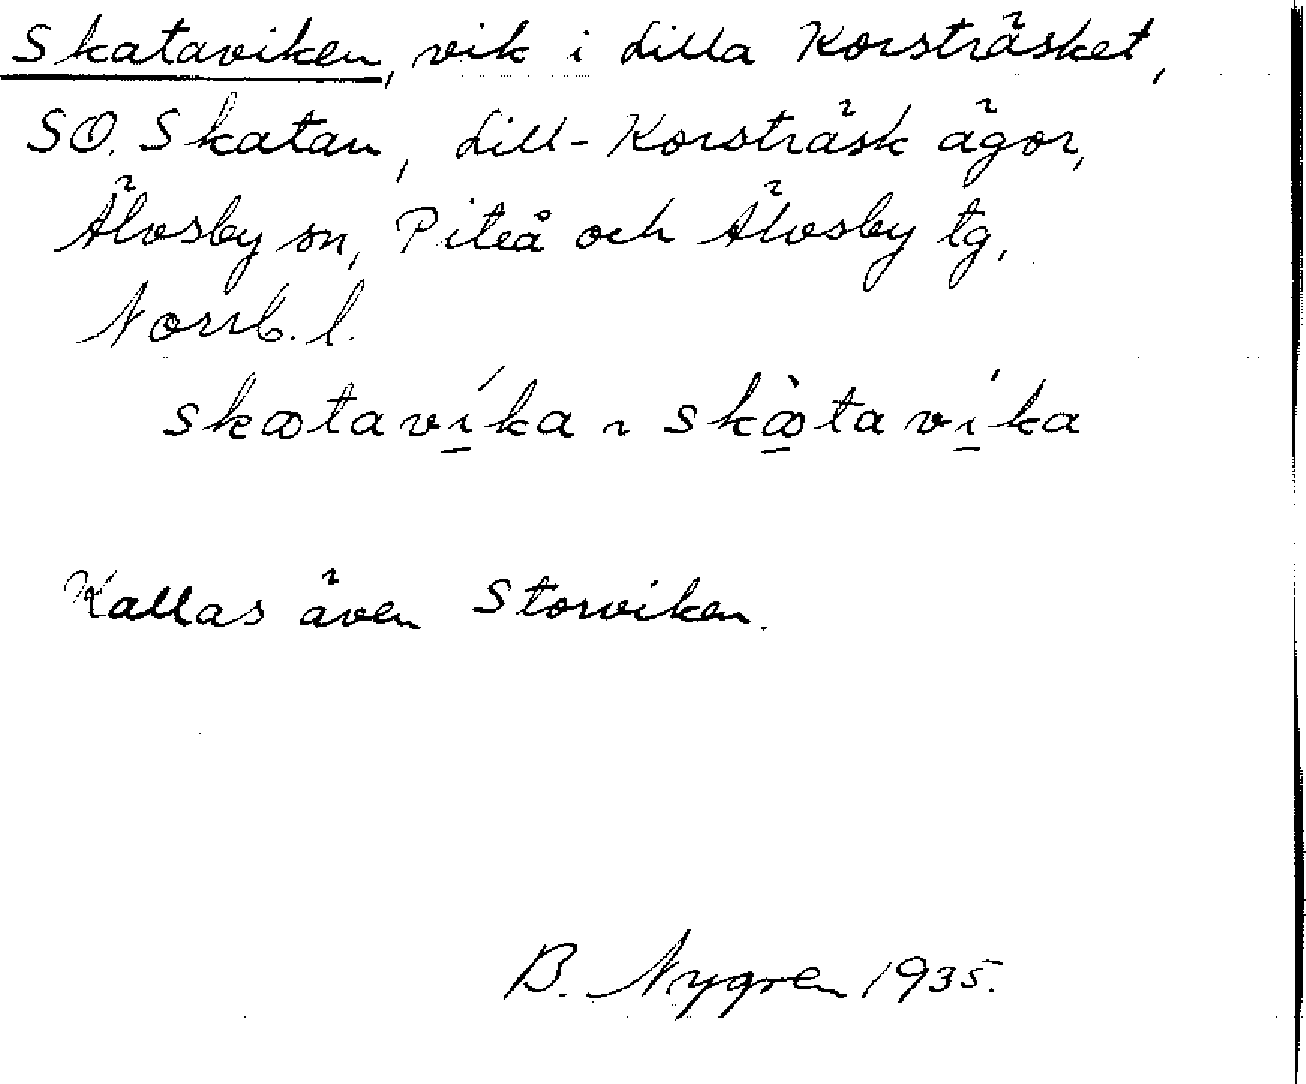 Skataviken, vik i Lilla Korsträsket,
SO. Skatan, Lill-Korsträsk ägor,
Älvsby sn, Piteå och Älvsby tg,
Norrb. l.
skataví̱ka ~ skà̱taví̱ka
Kallas även Storviken.
B. Nygren 1935.